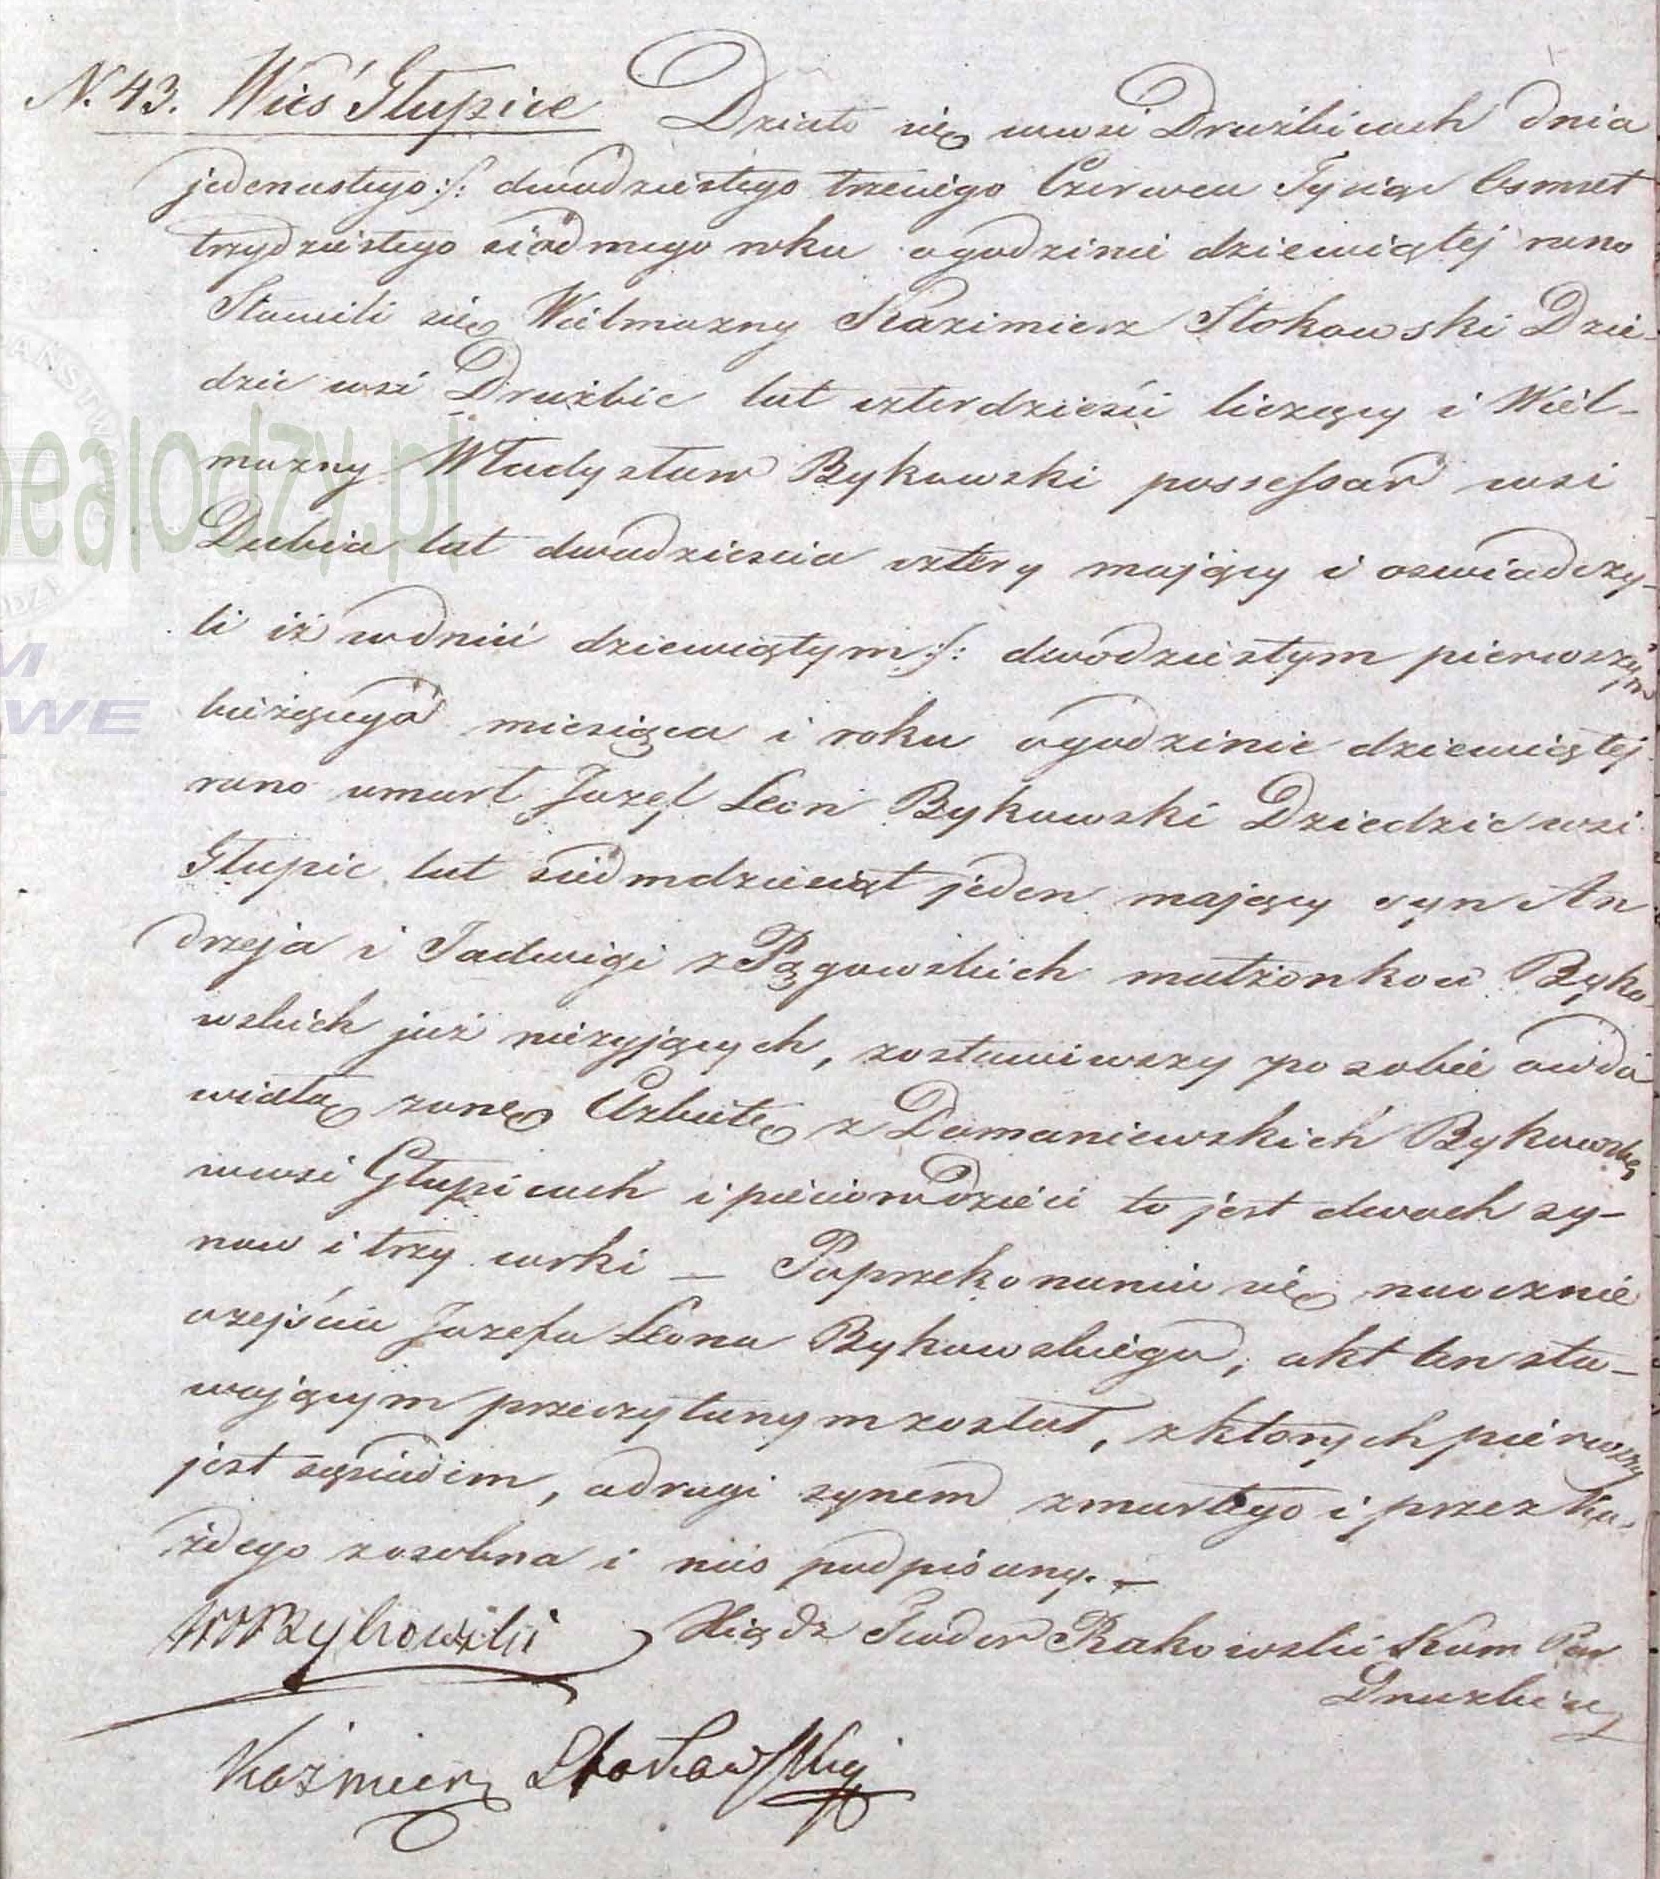 N. 43. Wieś Głupice Działo się wwsi Drużbicach dnia
jedenastego :/: dwudziestego trzeciego Czerwca Tysiąc Osmset
trzydziestego siódmego roku ogodzinie dziewiątej rano
Stawili się Wielmożny Kazimierz Stokowski Dzie-
dzic wsi Drużbic lat czterdzieści liczący i Wiel-
możny Władysław Bykowski possessor wsi
Dubia lat dwadzieścia cztery mający i oswiadczy-
li iż wdniu dziewiątym :/: dwudziestym pierwszym
bieżącego miesiąca i roku ogodzinie dziewiątej
rano umarł Jozef Leon Bykowski Dziedzic wsi
Głupic lat siedmdziesiąt jeden mający syn An
drzeja i Jadwigi z Pągowskich małżonkow Byko-
wskich już nieżyjących, zostawiwszy po sobie owdo
wiałą żonę Urbulę z Domaniewskich Bykowską
wwsi Głupicach i pięcioro dzieci to jest dwoch sy-
now i trzy corki — Poprzekonaniu się naocznie
ozejściu Jozefa Leona Bykowskiego, akt ten sta-
wającym przeczytanym został, zktorych pierwszy
jest sąsiadem, adrugi synem zmarłego i przez ka-
żdego zosobna i nas podpisany. —
WBykowski Xiądz Teodor Rakowski Kom Par
Drużbice
Kaźmierz Stokowski
nealodzy.pl
M
WE